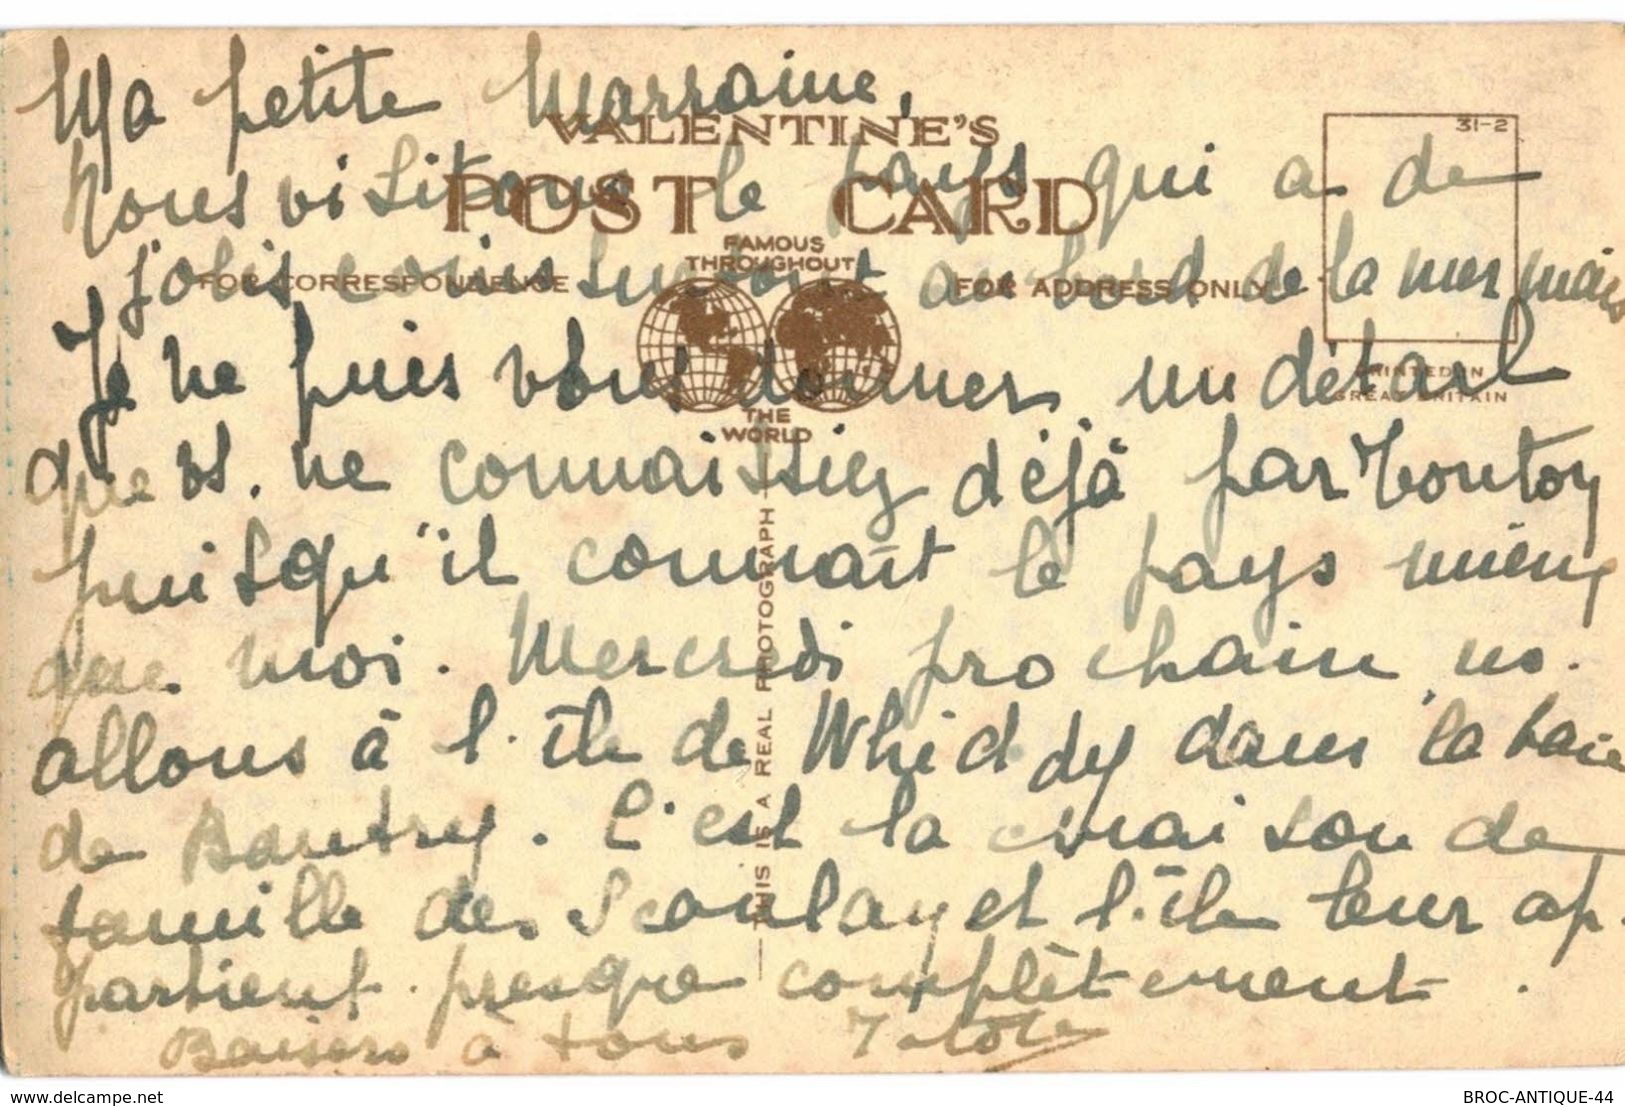 Ma petite Marraine,
VALENTINE'S
31-2
Nous visitons le pays qui a de
POST CARD
FAMOUS
THROUGHOUT
jolis coins surtout au bord de la mer mais
FOR CORRESPONDENCE
FOR ADDRESS ONLY
Je ne puis vous donner un détail
PRINTED IN
GREAT BRITAIN
THE
WORLD
que vs. ne connaissiez déjà par Tonton
puisqu'il connaît le pays mieux
que moi. Mercredi prochain ns.
allons à l'île de Whiddy dans la baie
de Bantry. C'est la maison de
famille des et l'île leur ap-
partient presque complètement.
Baisers à tous
THIS IS A REAL PHOTOGRAPH
delcampe.net
BROC-ANTIQUE-44